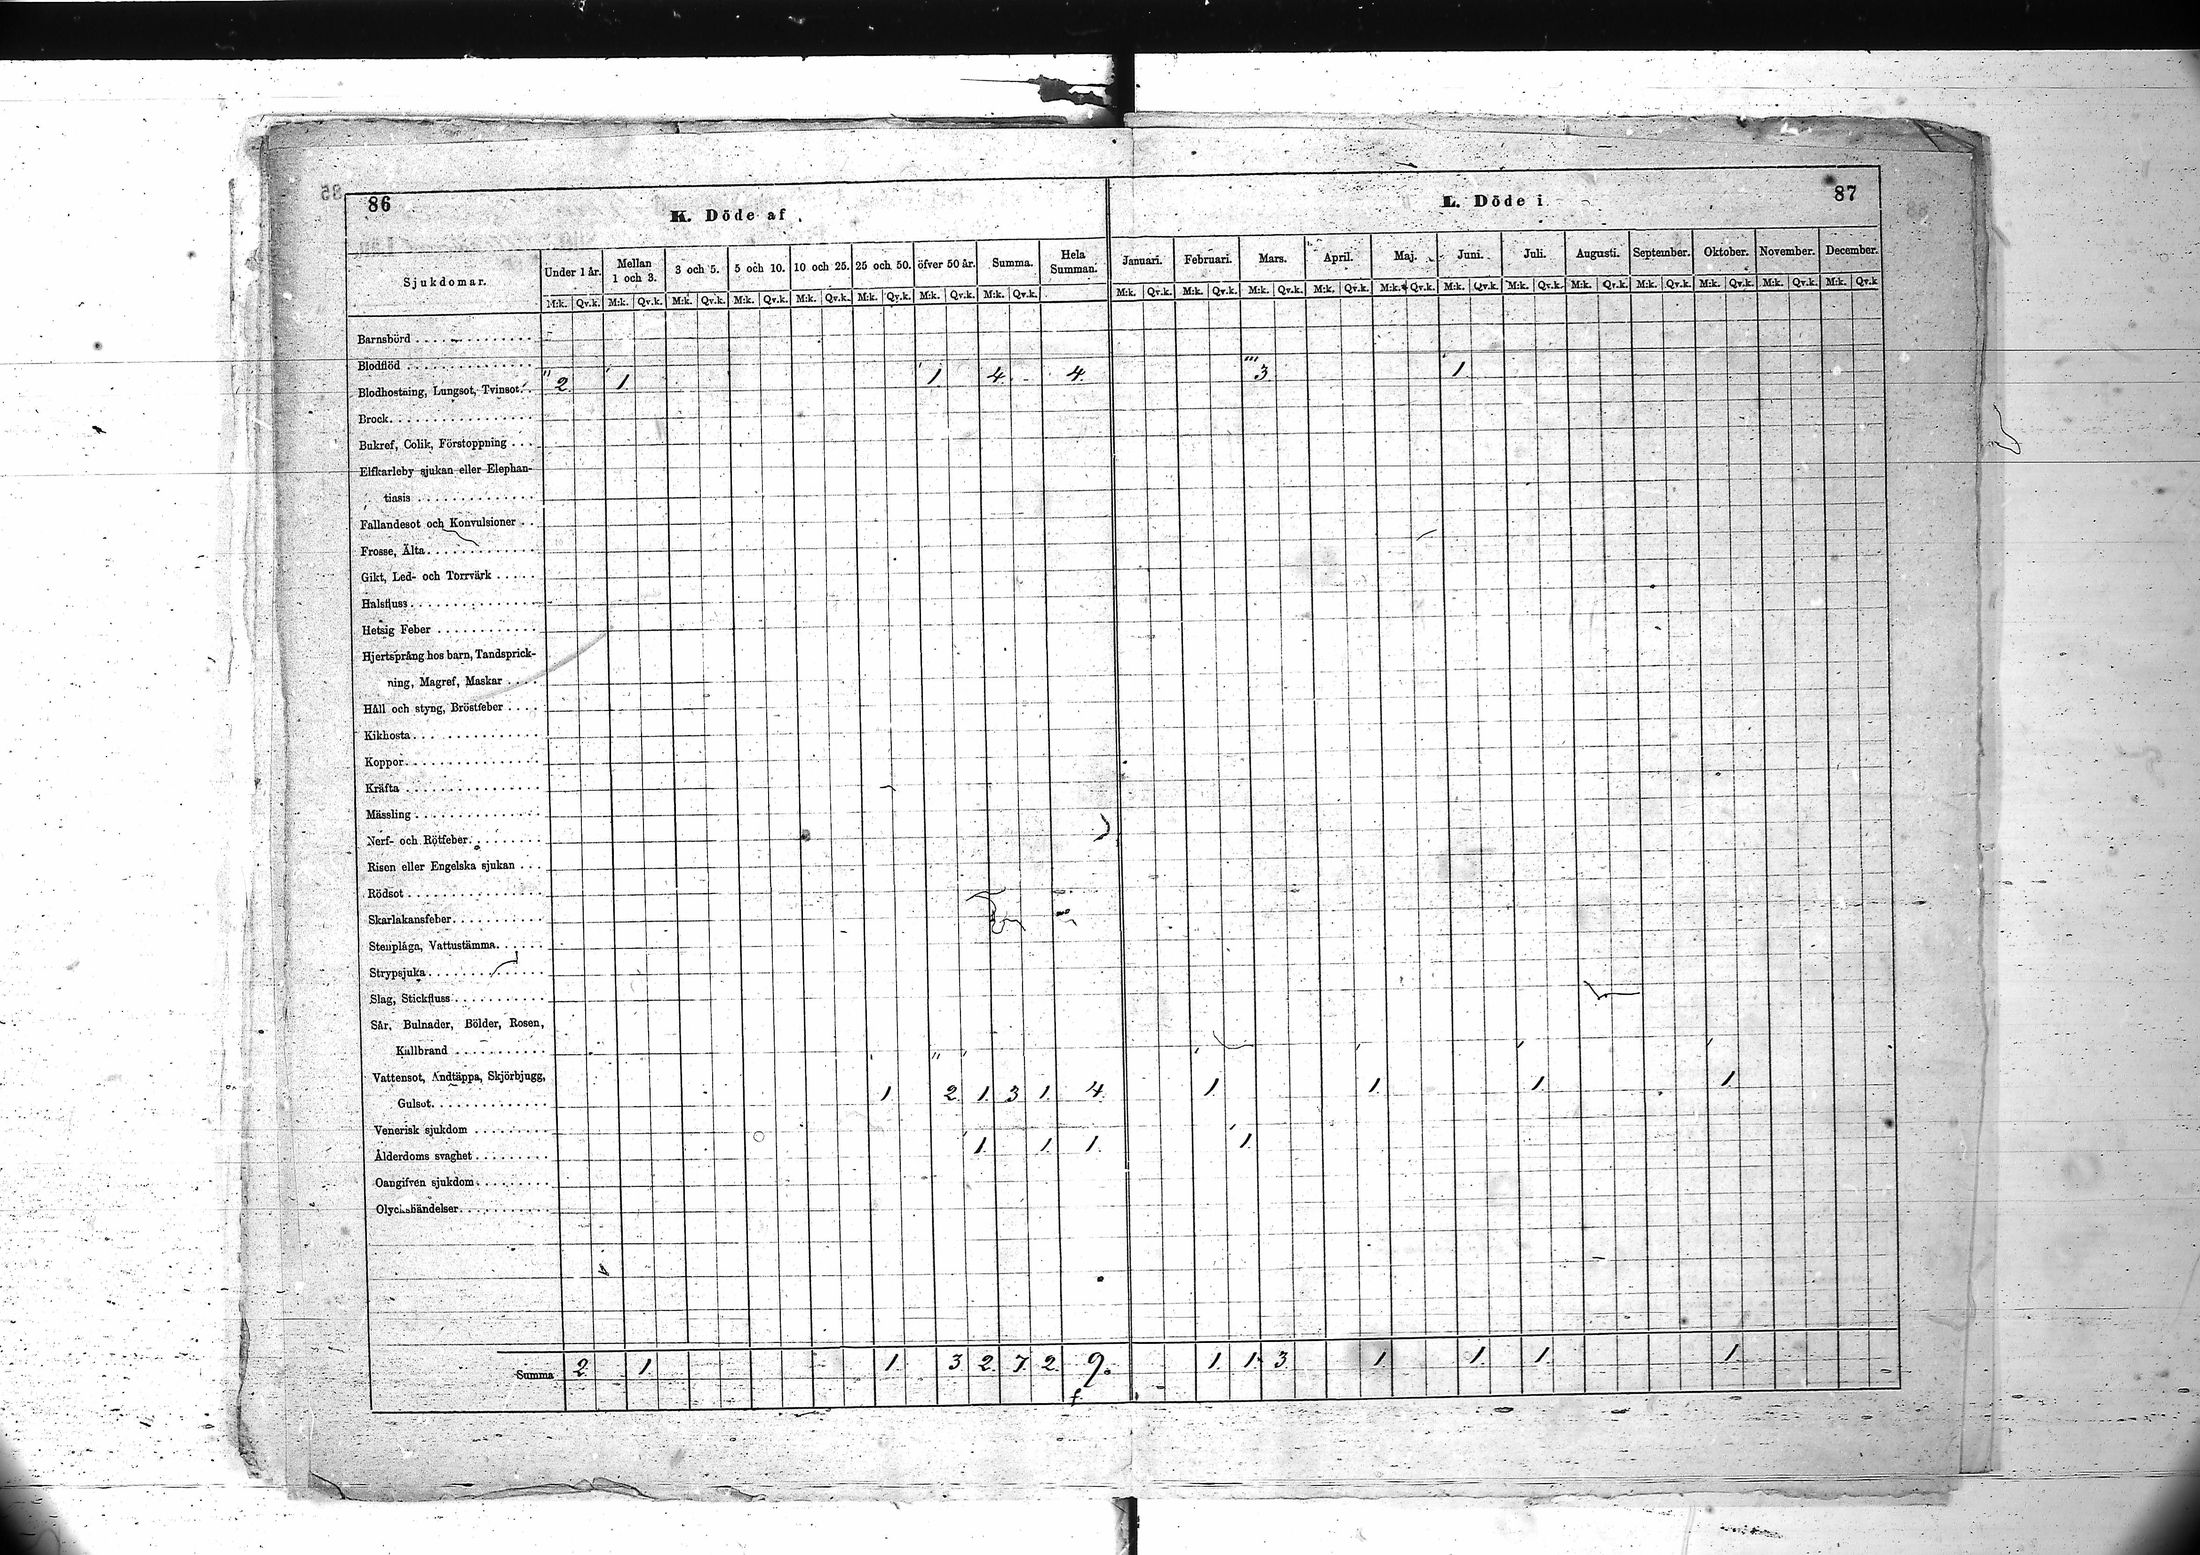 86
K. Döde af
L. Döde i
87
Sjukdomar. Under 1 år. Mellan 1 och 3. 3 och 5. 5 och 10. 10 och 25. 25 och 50. öfver 50 år. Summa. Hela Summan. Januari. Februari. Mars. April. Maj. Juni. Juli. Augusti. September. Oktober. November. December.
M:k. Qv.k. M:k. Qv.k. M:k. Qv.k. M:k. Qv.k. M:k. Qv.k. M:k. Qv.k. M:k. Qv.k. M:k. Qv.k. M:k. Qv.k. M:k. Qv.k. M:k. Qv.k. M:k. Qv.k. M:k. Qv.k. M:k. Qv.k. M:k. Qv.k. M:k. Qv.k. M:k. Qv.k. M:k. Qv.k. M:k. Qv.k. M:k. Qv.k
Barnsbörd
Blodflöd
Blodhostning, Lungsot, Tvinsot 2. 1. 1. 4. 4. 3 1.
Brock
Bukref, Colik, Förstoppning
Elfkarleby sjukan eller Elephan-
tiasis
Fallandesot och Konvulsioner
Frosse, Älta
Gikt, Led- och Torrvärk
Halsfluss
Hetsig Feber
Hjertsprång hos barn, Tandsprick-
ning, Magref, Maskar
Håll och styng, Bröstfeber
Kikhosta
Koppor
Kräfta
Mässling
Nerf- och Rötfeber
Risen eller Engelska sjukan
Rödsot
Skarlakansfeber
Stenplåga, Vattustämma
Strypsjuka
Slag, Stickfluss
Sår, Bulnader, Bölder, Rosen,
Kallbrand
Vattensot, Andtäppa, Skjörbjugg,
Gulsot 1 2 1. 3 1. 4. 1. 1. 1. 1.
Venerisk sjukdom
Ålderdoms svaghet 1. 1. 1. 1.
Oangifven sjukdom
Olyckshändelser
Summa 2. 1. 1. 3 2. 7. 2. 9. 1. 1. 3. 1. 1. 1. 1.